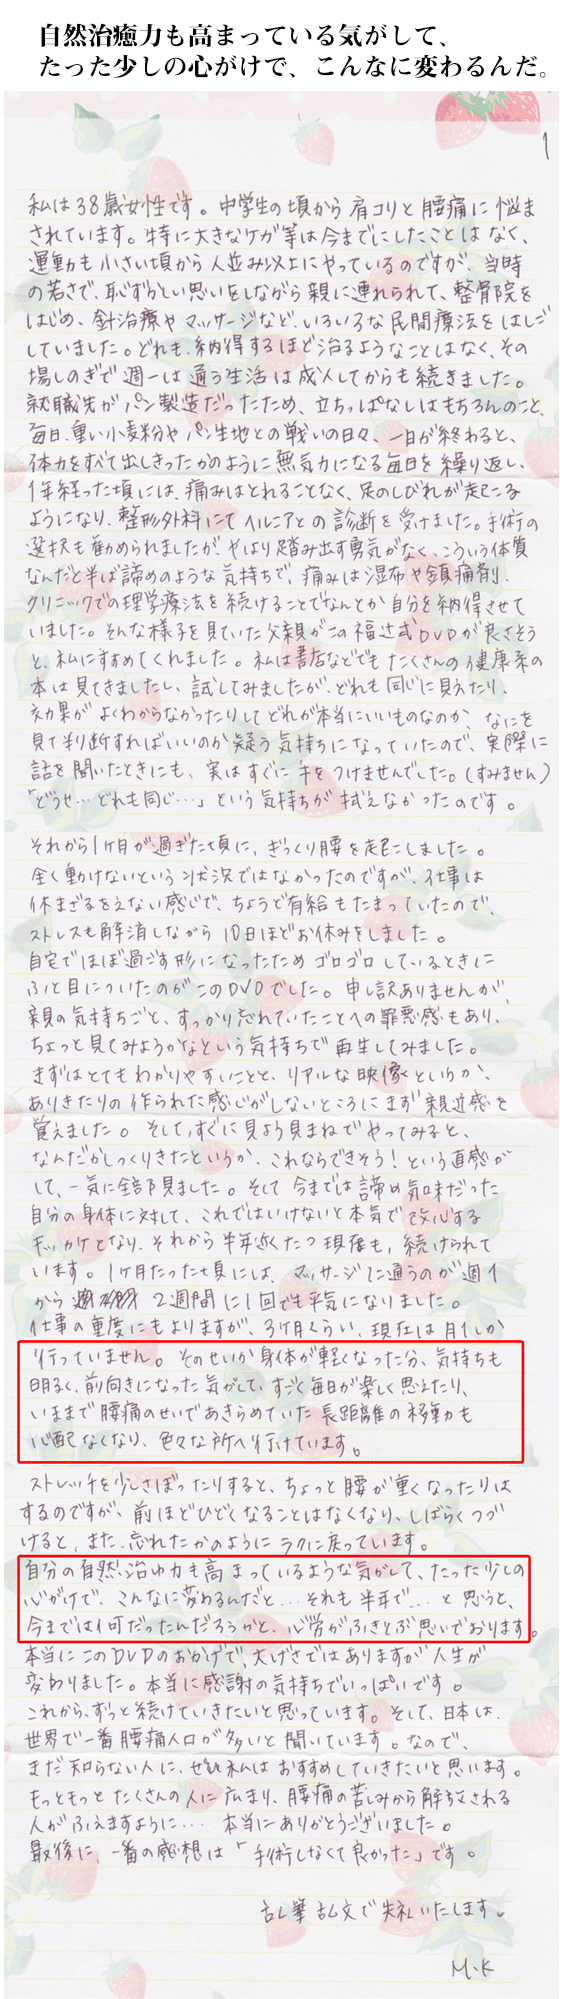 自然治癒力も高まっている気がして、
たった少しの心がけで、こんなに変わるんだ。
1
私は38歳女性です。中学生の頃から肩コリと腰痛に悩ま
されています。特に大きなケガ等は今までにしたことはなく、
運動も小さい頃から人並み以上にやっているのですが、当時
の若さで、恥ずかしい思いをしながら親に連れられて、整骨院を
はじめ、針治療やマッサージなど、いろいろな民間療法をはしご
していました。どれも、納得するほど治るようなことはなく、その
場しのぎで週一は通う生活は成人してからも続きました。
就職先がパン製造だったため、立ちっぱなしはもちろんのこと、
毎日、重い小麦粉やパン生地との戦いの日々、一日が終わると、
体力をすべて出しきったかのように無気力になる毎日を繰り返し、
1年経った頃には、痛みはとれることなく、足のしびれが起こる
ようになり、整形外科にてヘルニアとの診断を受けました。手術の
選択も勧められましたが、やはり踏み出す勇気がなく、こういう体質
なんだと半ば諦めのような気持ちで、痛みは湿布や鎮痛剤、
クリニックでの理学療法を続けることでなんとか自分を納得させて
いました。そんな様子を見ていた父親がこの福辻式DVDが良さそう
と、私にすすめてくれました。私は書店などでもたくさんの健康系の
本は見てきましたし、試してみましたが、どれも同じに見えたり、
効果がよくわからなかったりしてどれが本当にいいものなのか、なにを
見て判断すればいいのか疑う気持ちになっていたので、実際に
話を聞いたときにも、実はすぐに手をつけませんでした。(すみません)
「どうせ…どれも同じ…」という気持ちが拭えなかったのです。
それから1ヶ月が過ぎた頃に、ぎっくり腰を起こしました。
全く動けないという状況ではなかったのですが、仕事は
休まざるをえない感じで、ちょうど有給もたまっていたので、
ストレスも解消しながら10日ほどお休みをしました。
自宅でほぼ過ごす形になったためゴロゴロしているときに
ふと目についたのがこのDVDでした。申し訳ありませんが、
親の気持ちごと、すっかり忘れていたことへの罪悪感もあり、
ちょっと見てみようかなという気持ちで再生してみました。
まずはとてもわかりやすいことと、リアルな映像というか、
ありきたりの作られた感じがしないところにまず親近感を
覚えました。そして、すぐに見よう見まねでやってみると、
なんだかしっくりきたというか、これならできそう!という直感が
して、一気に全部見ました。そして今までは諦め気味だった
自分の身体に対して、これではいけないと本気で改心する
キッカケとなり、それから半年近くたつ現在も、続けられて
います。1ヶ月たった頃には、マッサージに通うのが週1
から2週間に1回でも平気になりました。
仕事の重度にもよりますが、3ヶ月くらい、現在は月1しか
行っていません。そのせいか身体が軽くなった分、気持ちも
明るく、前向きになった気がして、すごく毎日が楽しく思えたり、
いままで腰痛のせいであきらめていた長距離の移動も
心配なくなり、色々な所へ行けています。
ストレッチを少しさぼったりすると、ちょっと腰が重くなったりは
するのですが、前ほどひどくなることはなくなり、しばらくつづ
けると、また、忘れたかのようにラクに戻っています。
自分の自然治ゆ力も高まっているような気がして、たった少しの
心がけで、こんなに変わるんだと…それも半年で…と思うと、
今までは何だったんだろうかと、心労がふきとぶ思いでおります。
本当にこのDVDのおかげで、大げさではありますが人生が
変わりました。本当に感謝の気持ちでいっぱいです。
これから、ずっと続けていきたいと思っています。そして、日本は、
世界で一番腰痛人口が多いと聞いています。なので、
まだ知らない人に、ぜひ私はおすすめしていきたいと思います。
もっともっとたくさんの人に広まり、腰痛の苦しみから解放される
人がふえますように… 本当にありがとうございました。
最後に、一番の感想は「手術しなくて良かった」です。
乱筆乱文で失礼いたします。
M.K